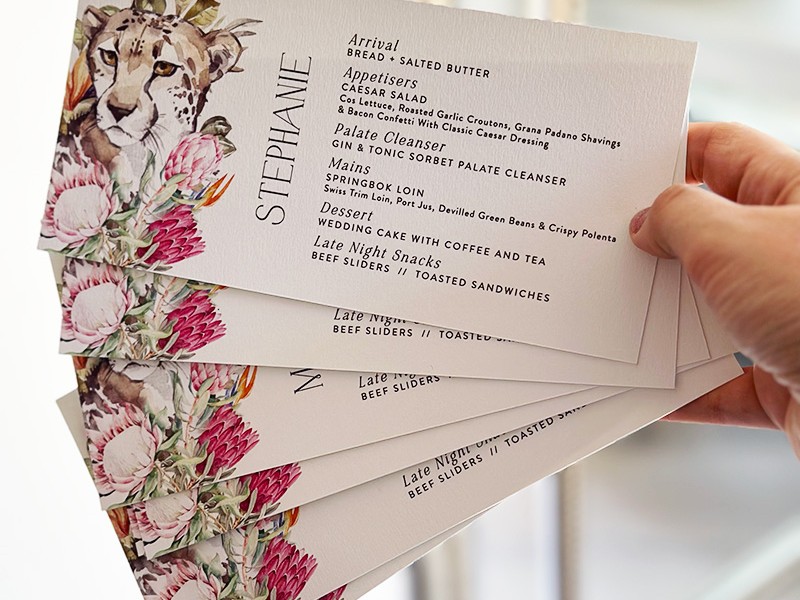 STEPHANIE
Arrival
BREAD + SALTED BUTTER
Appetisers
CAESAR SALAD
Cos Lettuce, Roasted Garlic Croutons, Grana Padano Shavings
& Bacon Confetti With Classic Caesar Dressing
Palate Cleanser
GIN & TONIC SORBET PALATE CLEANSER
Mains
SPRINGBOK LOIN
Swiss Trim Loin, Port Jus, Devilled Green Beans & Crispy Polenta
Dessert
WEDDING CAKE WITH COFFEE AND TEA
Late Night Snacks
BEEF SLIDERS // TOASTED SANDWICHES
Late Night
BEEF SLIDERS // TOASTED
M
Late Night
BEEF SLIDERS // TOASTED
Late Night
BEEF SLIDERS // TOASTED